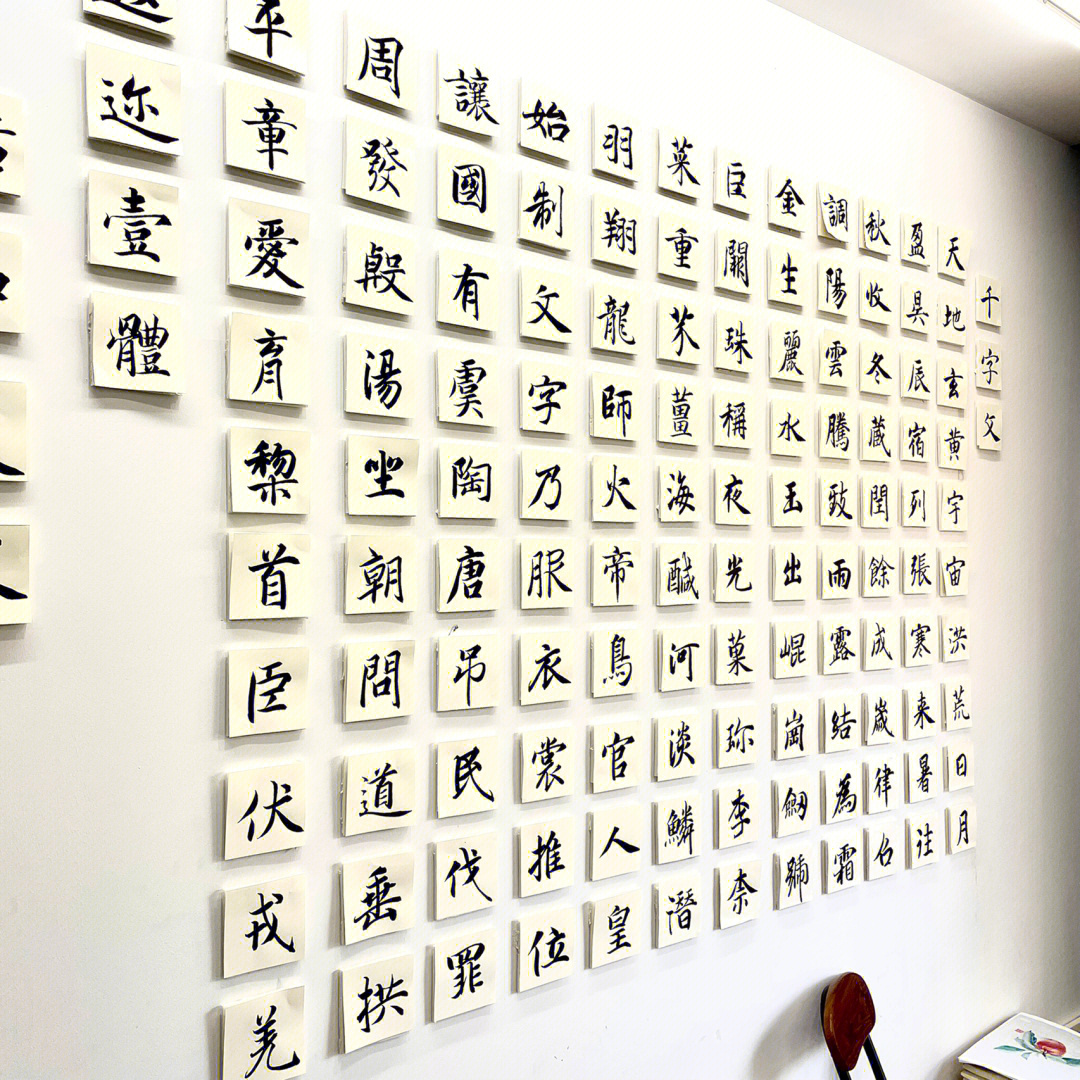 千字文
天地玄黄宇宙洪荒日月
盈昃辰宿列張寒来暑往
秋收冬蔵閏餘成歳律呂
調陽雲騰致雨露結為霜
金生麗水玉出崐崗劔號
巨闕珠稱夜光菓珎李柰
菜重芥薑海鹹河淡鱗潛
羽翔龍師火帝鳥官人皇
始制文字乃服衣裳推位
讓國有虞陶唐吊民伐罪
周發殷湯坐朝問道垂拱
平章愛育黎首臣伏戎羌
迩壹體